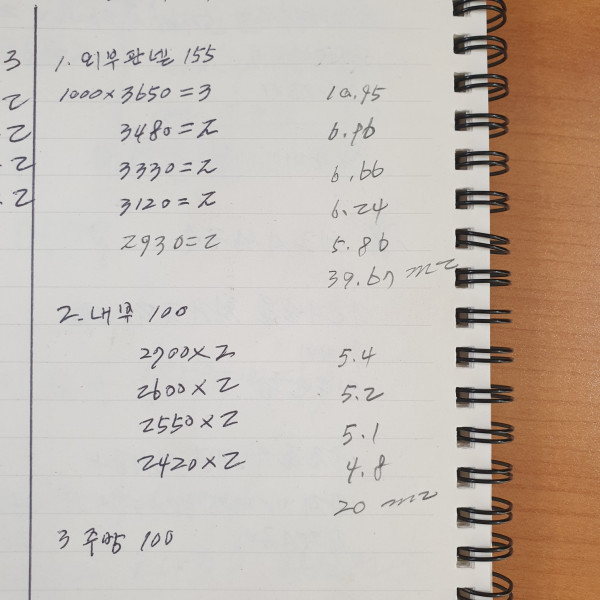 3
1. 외부판넬 155
2
1000×3650=3 10.95
2
3480=2 6.96
2
3330=2 6.66
2
3120=2 6.24
2930=2 5.86
39.67 m2
2. 내부 100
2700×2 5.4
2600×2 5.2
2550×2 5.1
2420×2 4.8
20 m2
3 주방 100